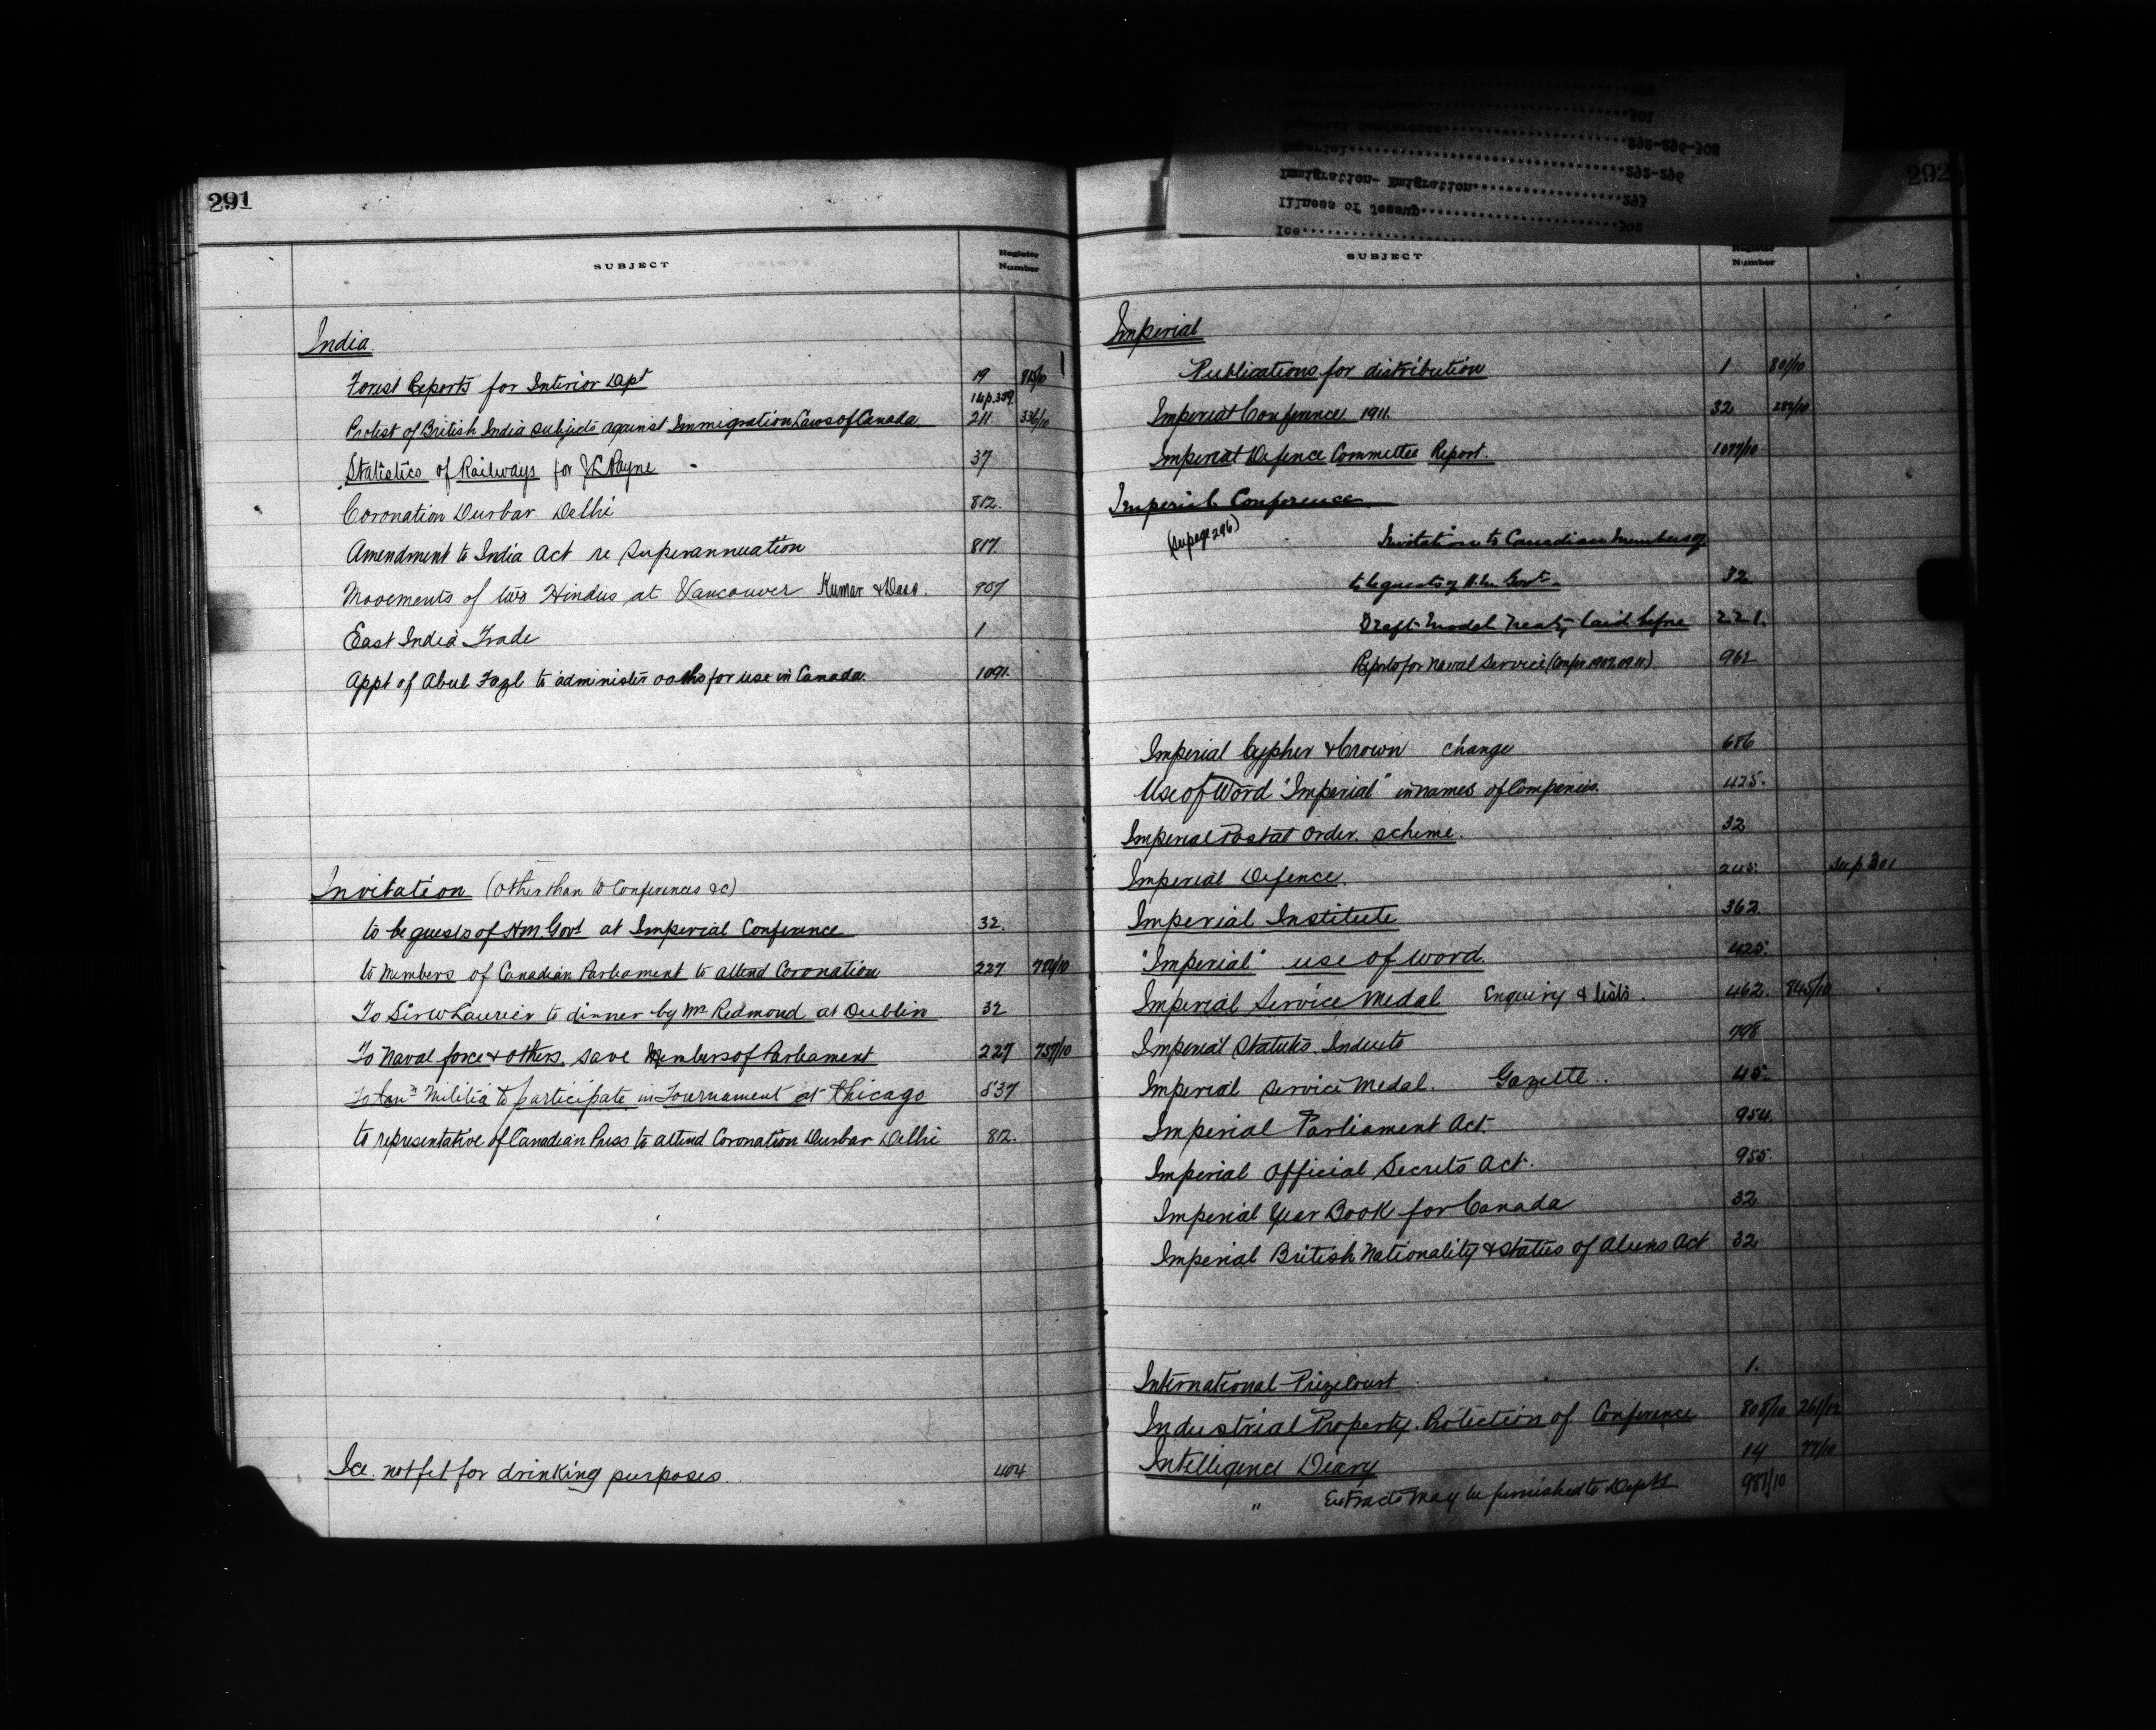 291
SUBJECT
Register Number
India
Forest Reports for Interior Dpt 19
Protest of British India subjects against Immigration Laws of Canada 211 336/10
Statistics of Railways for JL Payne 37
Coronation Durbar Delhi 812.
Amendment to India Act re Superannuation 817.
Movements of two Hindus at Vancouver Kumar & Dass. 907
East India Trade 1
Appt of Abul Fazl to administer oaths for use in Canada. 1091.
Invitation (other than to Conferences &c)
to be guests of H.M. Govt at Imperial Conference 32.
to Members of Canadian Parliament to attend Coronation 227
To Sir W Laurier to dinner by Mr Redmond at Dublin 32
To Naval force & others, save Members of Parliament 227 757/10
To Can'n Militia to participate in Tournament at Chicago 837
to representative of Canadian Press to attend Coronation Durbar Delhi 812.
Ice. not fit for drinking purposes. 404
292
Imperial 292-296
Immigration- Emigration
Illness of Jessup 293
Ice 302
SUBJECT
Register Number
Imperial
Publications for distribution 1 801/10
Imperial Conference 1911. 32 282/10
Imperial Defence Committee Report. 1077/10
Imperial Conference
(See page 296)
Invitation to Canadian Members of
to be guests of H.M. Govt. 32
Draft Model Treaty laid before 221.
Reports for Naval Service (Confce 1907. 09. 11.) 962
Imperial Cypher & Crown change 686
Use of Word "Imperial" in names of Companies. 425.
Imperial Postal Order. scheme. 32
Imperial Defence. 245. See p. 301
Imperial Institute 362.
"Imperial" use of word. 425.
Imperial Service Medal Enquiry & lists. 462. 845/10
Imperial Statutes. Indices to 798
Imperial Service Medal. Gazette. 45.
Imperial Parliament Act. 954.
Imperial Official Secrets Act. 955.
Imperial Year Book for Canada 32
Imperial British Nationality & Status of Aliens Act 32
International Prize Court 1.
Industrial Property. Protection of Conference 808/10 261/12
Intelligence Diary 14 77/10
" Extracts may be furnished to Depts 987/10